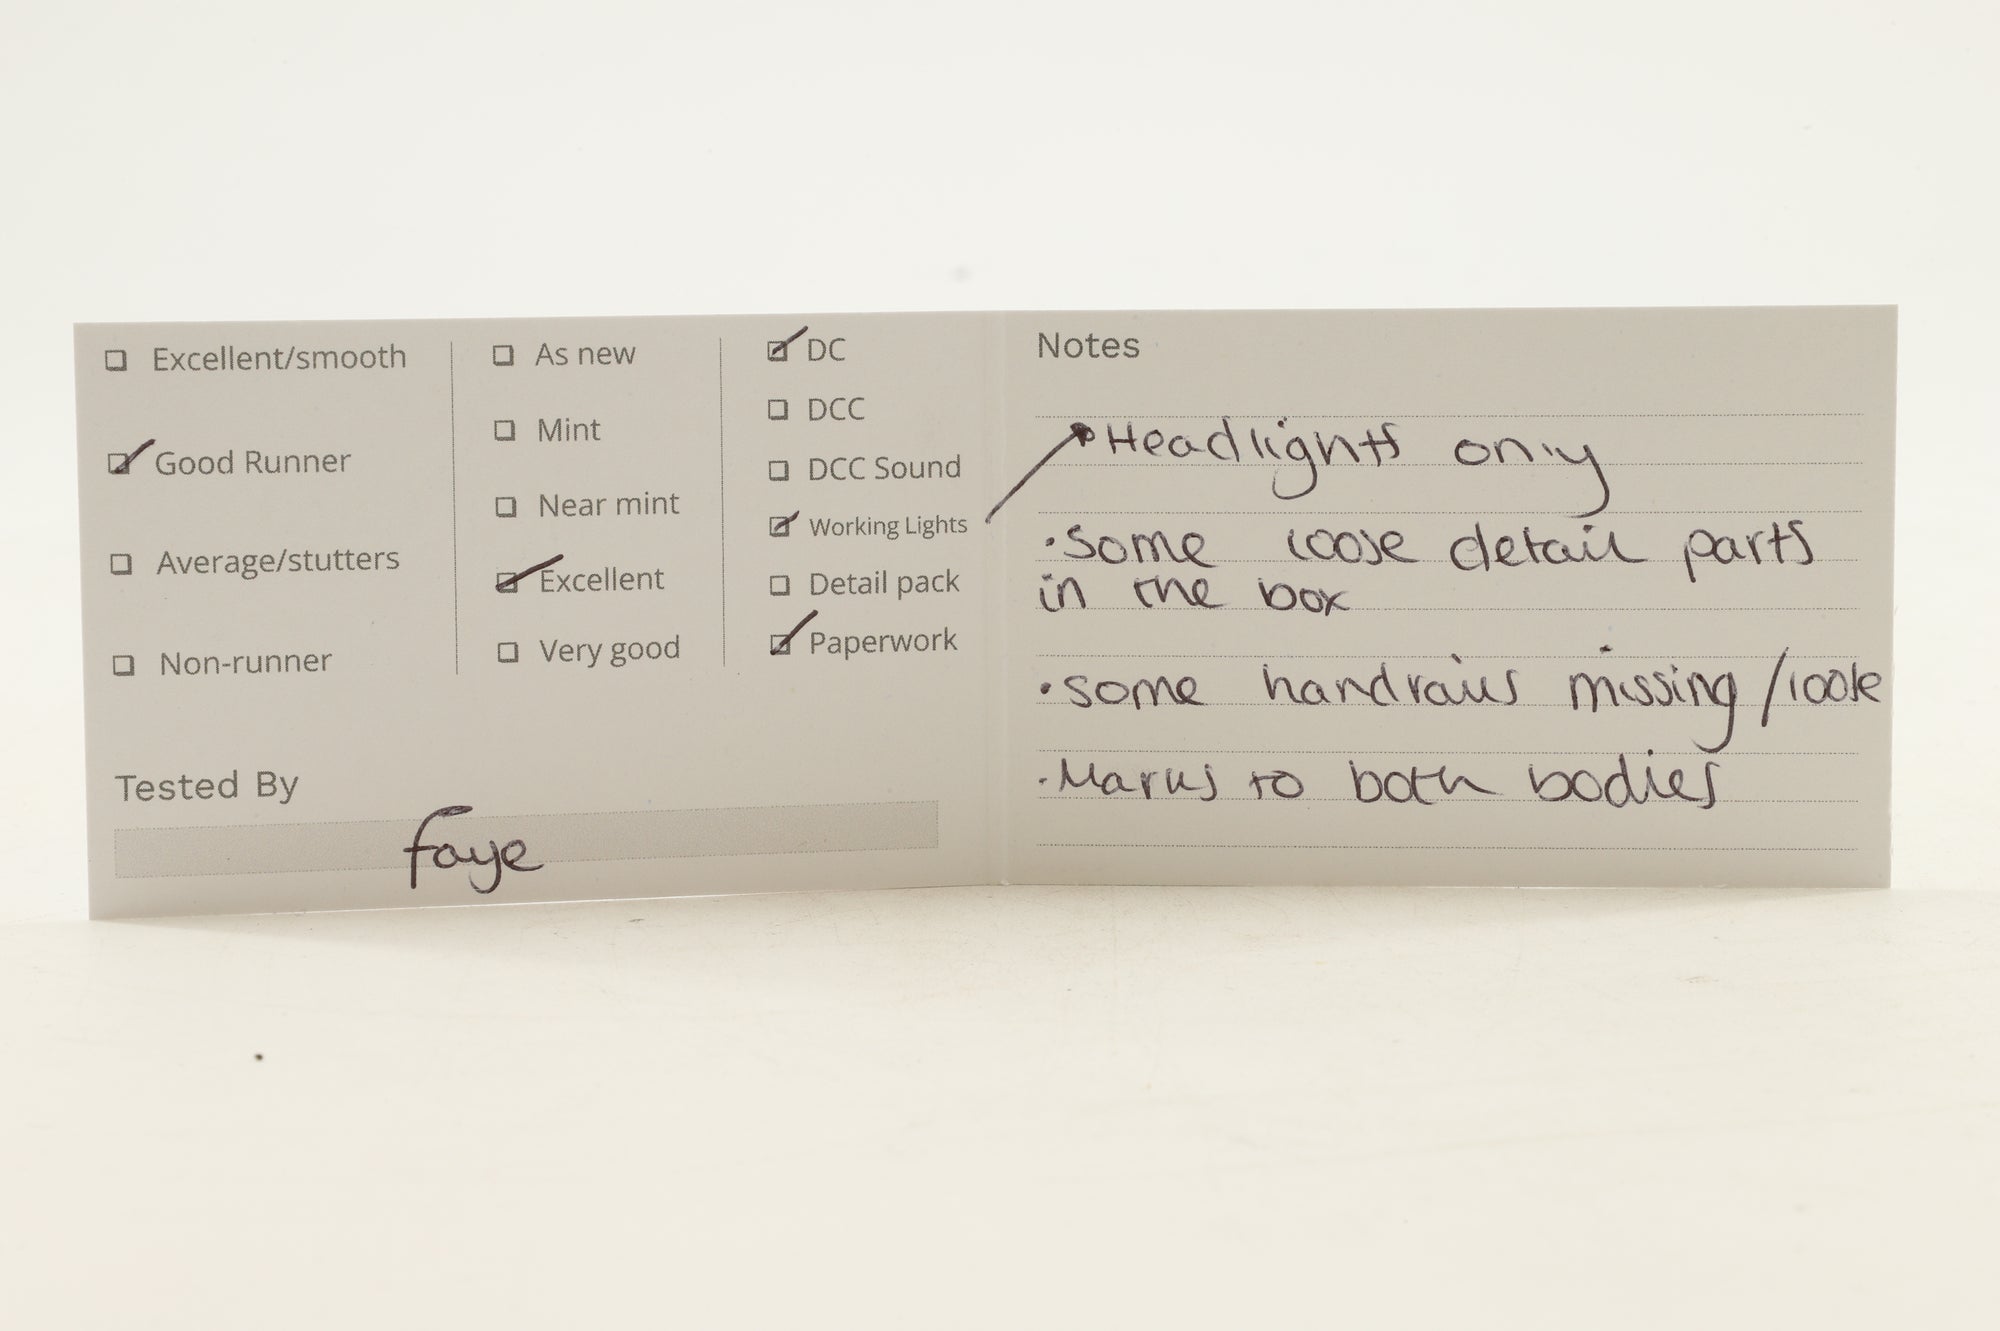 Excellent/smooth
Good Runner
Average/stutters
Non-runner
As new
Mint
Near mint
Excellent
Very good
DC
DCC
DCC Sound
Working Lights
Detail pack
Paperwork
Tested By
Faye
Notes
Headlights only
·Some loose detail parts
in the box
·Some handrails missing/loose
·Marks to both bodies